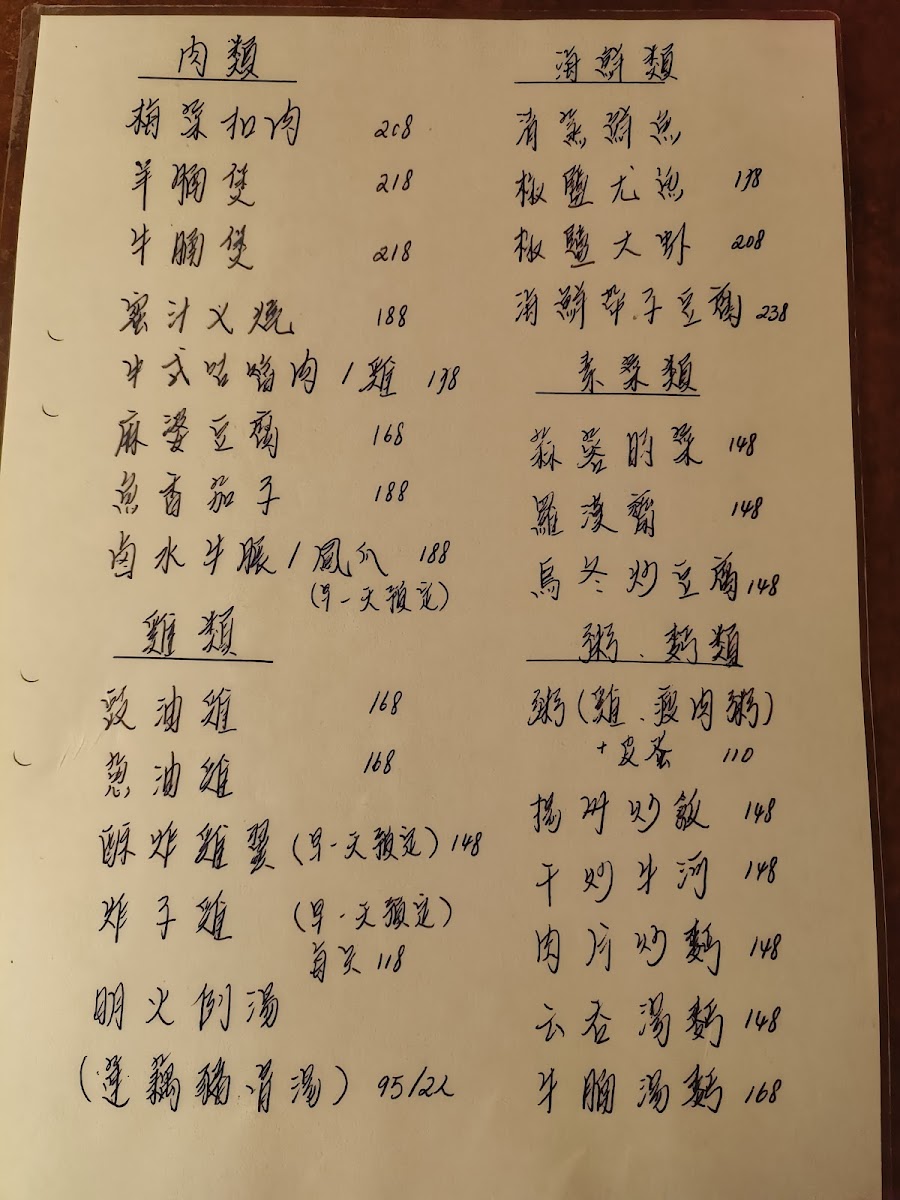 肉類
梅菜扣肉 208
羊腩煲 218
牛腩煲 218
蜜汁叉燒 188
中式咕嚕肉/雞 138
麻婆豆腐 168
魚香茄子 188
鹵水牛脤/鳳爪 188
(早一天預定)
雞類
豉油雞 168
葱油雞 168
酥炸雞翼(早一天預定)148
炸子雞 (早一天預定)
每隻 118
明火例湯
(蓮藕豬骨湯) 95/2人
海鮮類
清蒸鮮魚
椒鹽尤魚 138
椒鹽大虾 208
海鮮帶子豆腐 238
素菜類
蒜蓉時菜 148
羅漢齋 148
烏冬炒豆腐 148
粥、麵類
粥(雞、瘦肉粥)
+皮蛋 110
揚州炒飯 148
干炒牛河 148
肉片炒麵 148
云吞湯麵 148
牛腩湯麵 168